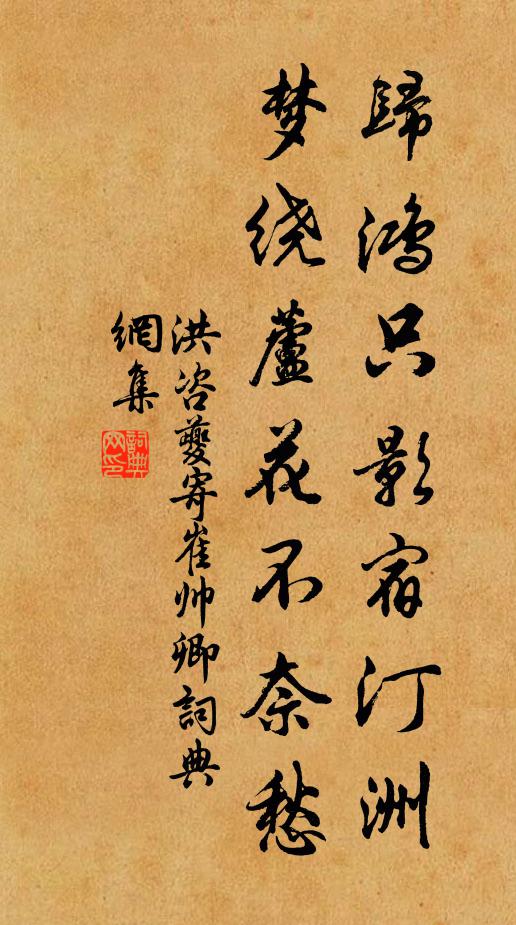 歸鴻只影宿汀洲
梦绕蘆花不奈愁
洪咨夔寄崔帅卿詞典
網集
詞典
网印